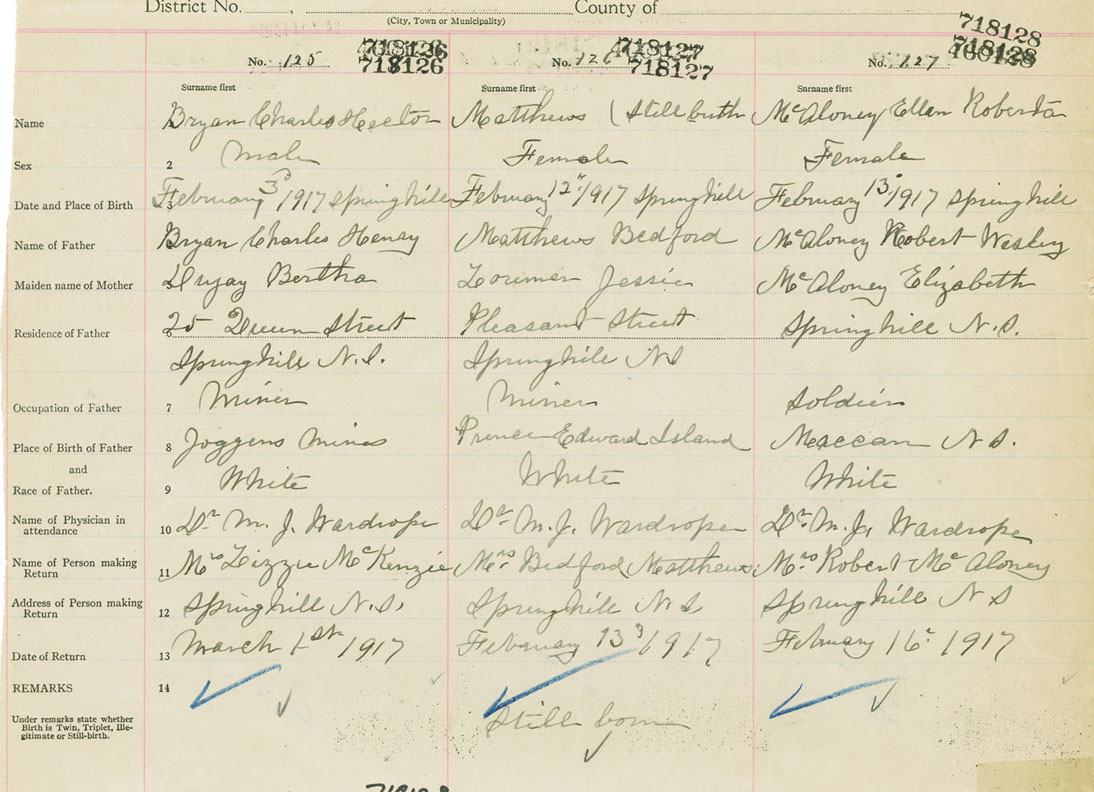 District No. County of
(City, Town or Municipality)
No. 125 718126 No. 126 718127 No. 127 718128
718126 718127 718128
Surname first Surname first Surname first
Name Bryan Charles Hector Matthews (Still birth McAloney Ellen Roberta
Sex 2 Male Female Female
Date and Place of Birth 3 February 3d 1917 Springhill February 12" 1917 Springhill February 13" 1917 Springhill
Name of Father Bryan Charles Henry Matthews Bedford McAloney Robert Wesley
Maiden name of Mother Bertha Lorimer Jessie McAloney Elizabeth
Residence of Father 25 Queen Street Pleasant Street Springhill N.S.
Springhill N.S. Springhill NS
Occupation of Father 7 Miner Miner Soldier
Place of Birth of Father 8 Joggens Mines Prince Edward Island Maccan N.S.
and
Race of Father. 9 White White White
Name of Physician in
attendance 10 Dr M. J. Wardrope Dr M. J. Wardrope Dr M. J. Wardrope
Name of Person making
Return 11 Mrs Lizzie McKenzie Mrs Bedford Matthews Mrs Robert McAloney
Address of Person making
Return 12 Springhill N.S. Springhill N.S Springhill N S
Date of Return 13 March 1st 1917 February 13 1917 February 16 1917
REMARKS 14
Under remarks state whether
Birth is Twin, Triplet, Ille-
gitimate or Still-birth.
Still born